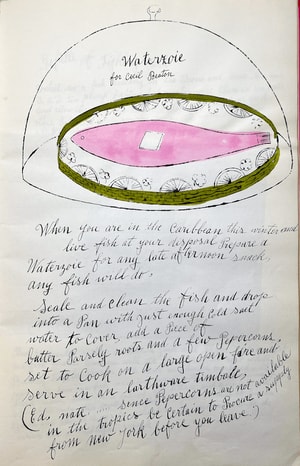 Waterzoie
for Cecil Beaton
When you are in the Caribbean this winter and
live fish at your disposal Prepare a
Waterzoie for any late afternoon snack,
any fish will do.
Scale and clean the fish and drop
into a Pan with just enough Cold salt
water to Cover, add a Piece of
butter Parsely roots and a few Pepercorns
set to Cook on a large open fire and
serve in an Earthware timbale,
(Ed. note ... sence Pepercorns are not available
in the tropics be Certain to Procure a supply
from New York before you leave.)